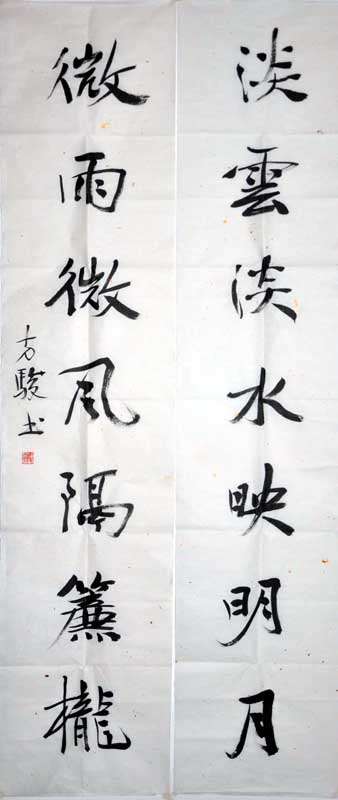 淡雲淡水映明月
微雨微風隔簾櫳
方駿書